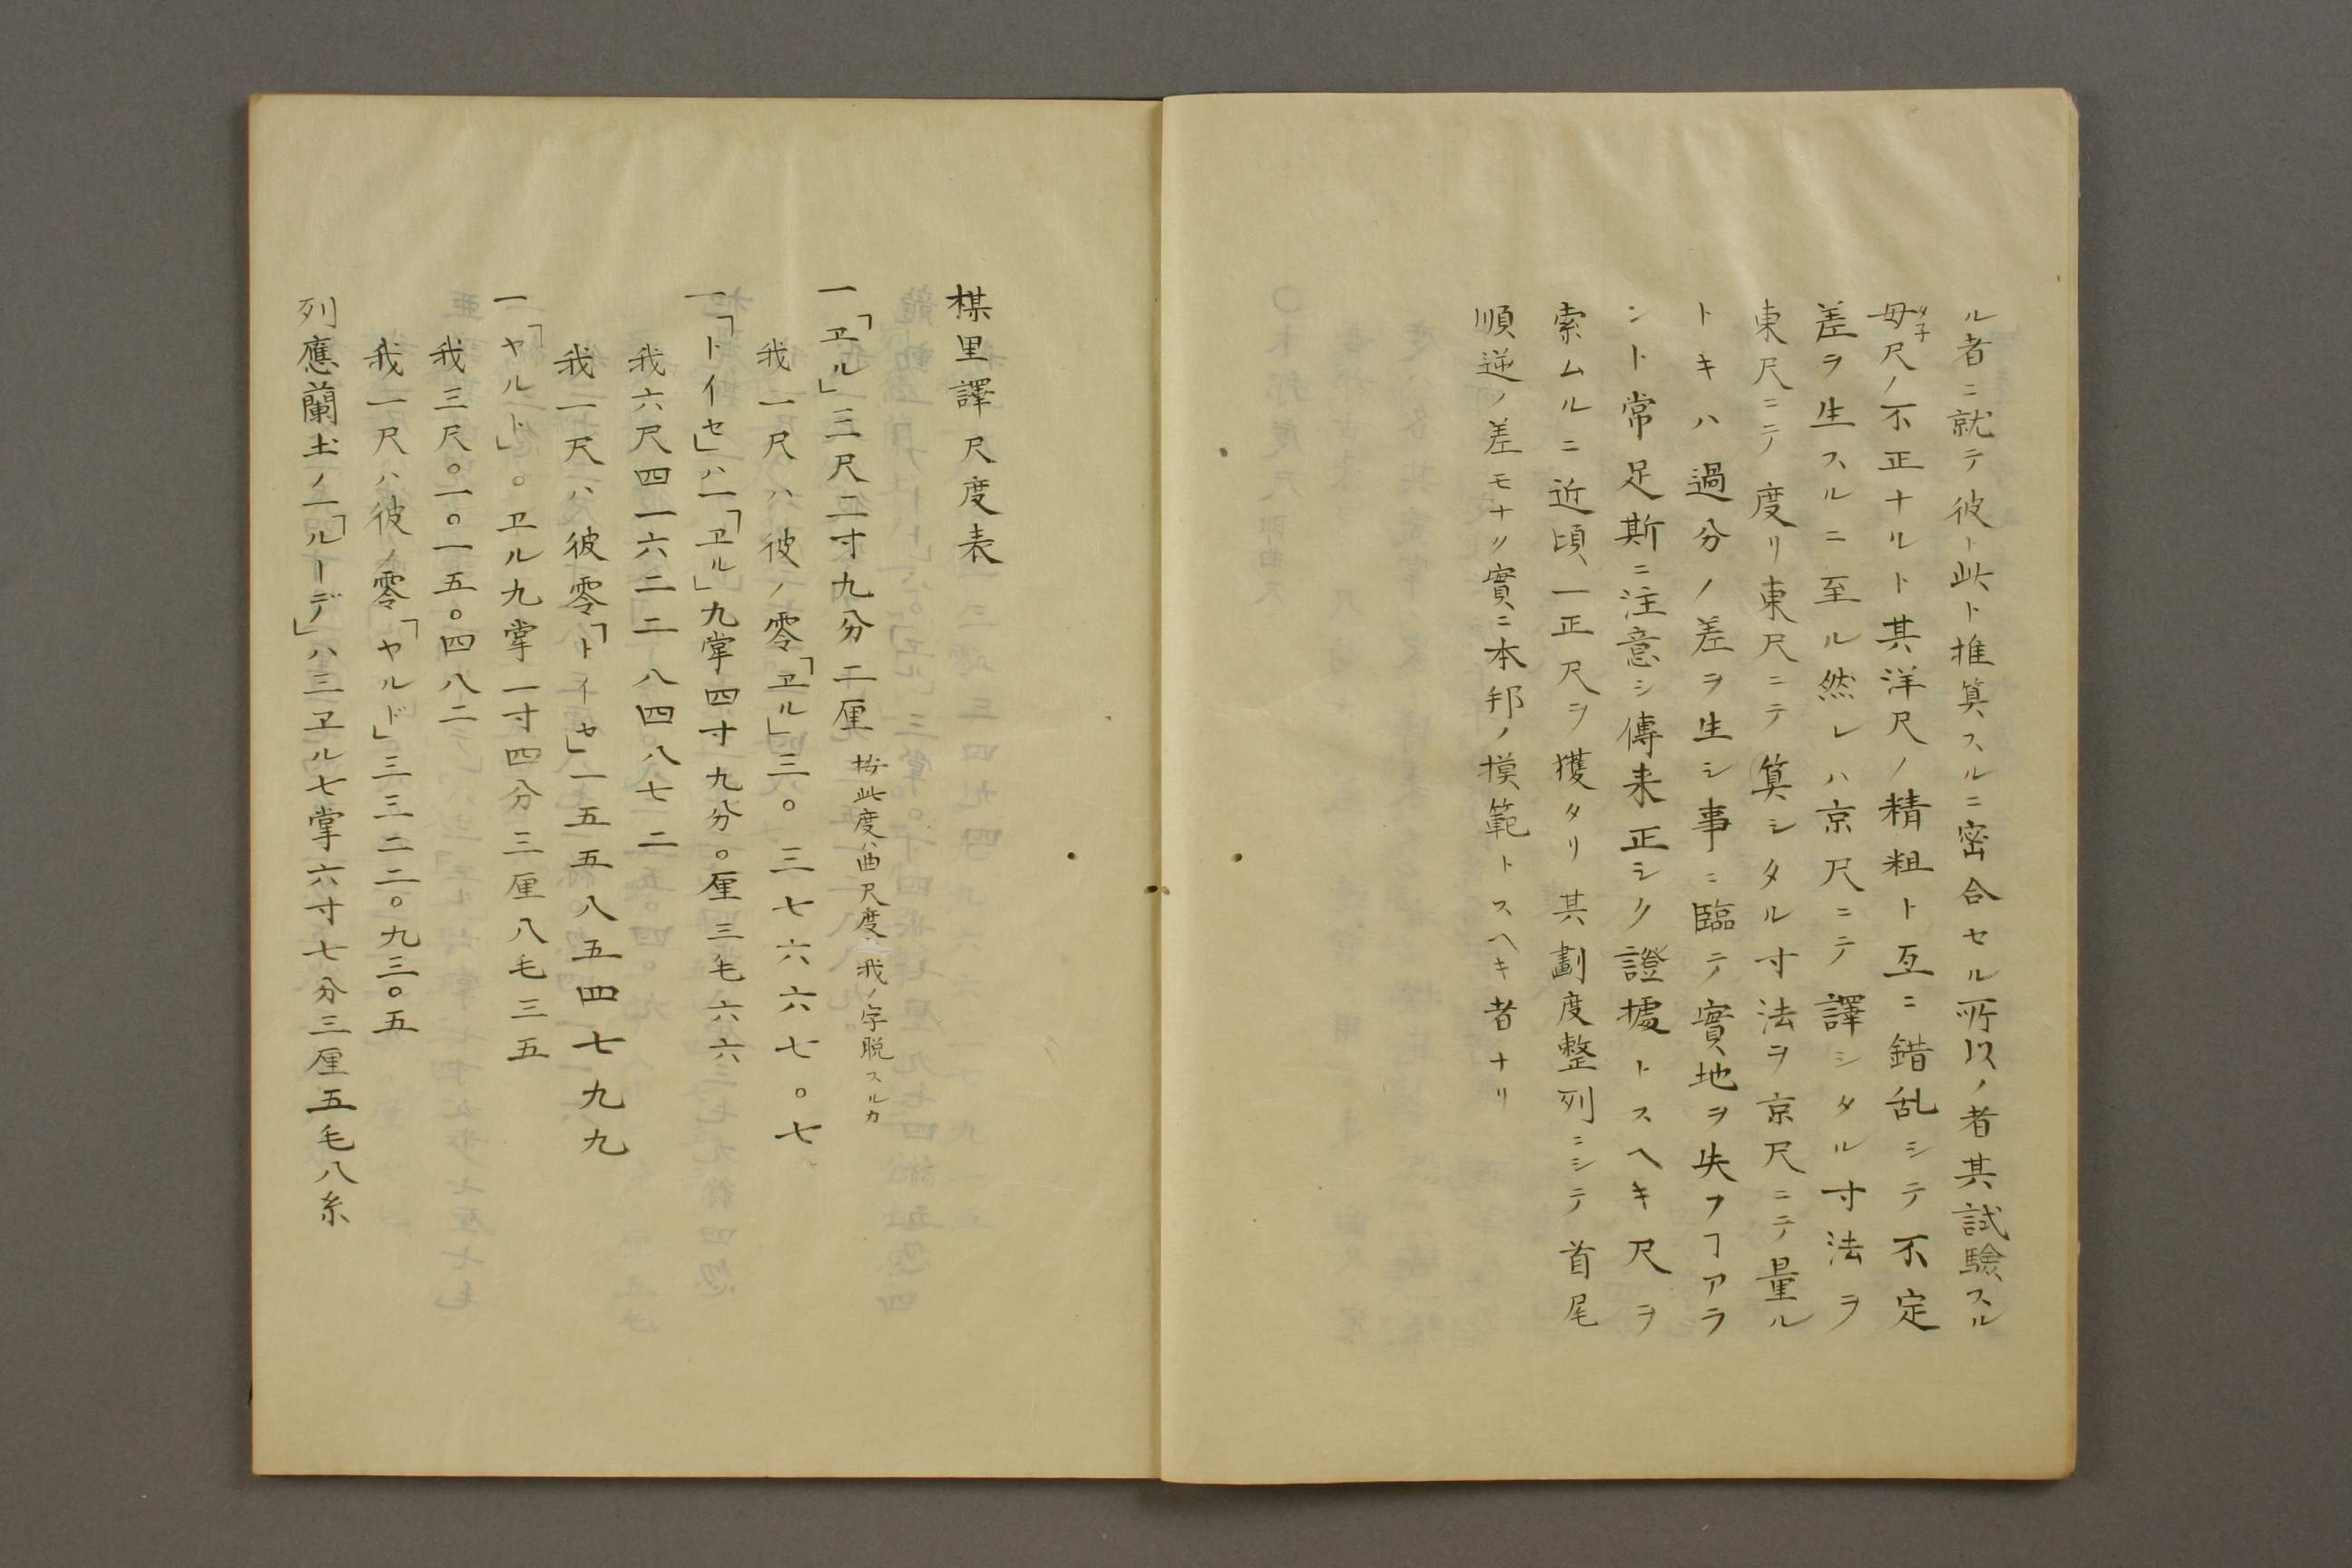 ル者ニ就テ彼ト此ト推算スルニ密合セル所以ノ者其試験スル
毋尺ノ不正ナルト其洋尺ノ精粗ト互ニ錯乱シテ不定
差ヲ生スルニ至ル然レハ京尺ニテ譯シタル寸法ヲ
東尺ニテ度リ東尺ニテ算シタル寸法ヲ京尺ニテ量ル
トキハ過分ノ差ヲ生シ事ニ臨テ實地ヲ失フヿアラ
ント常足斯ニ注意シ傳来正シク證據トスヘキ尺ヲ
索ムルニ近頃一正尺ヲ獲タリ其劃度整列ニシテ首尾
順逆ノ差モナク實ニ本邦ノ摸範トスヘキ者ナリ
楳里譯尺度表
一「ヱル」三尺二寸九分二厘 按此度ハ曲尺度我ノ字脱スルカ
我一尺ハ彼ノ零「ヱル」三〇三七六六七〇七
一「トイセ」ハ一「ヱル」九掌四寸九分〇厘三毛六六
我六尺四一六二二八四八七二
我一尺ハ彼零「トイセ」一五五八五四七九九
一「ヤルド」〇ヱル九掌一寸四分三厘八毛三五
我三尺〇一〇一五〇四八二
我一尺ハ彼ノ零「ヤルド」三三二二〇九三〇五
列應蘭土ノ一「ルーデ」ハ三ヱル七掌六寸七分三厘五毛八糸